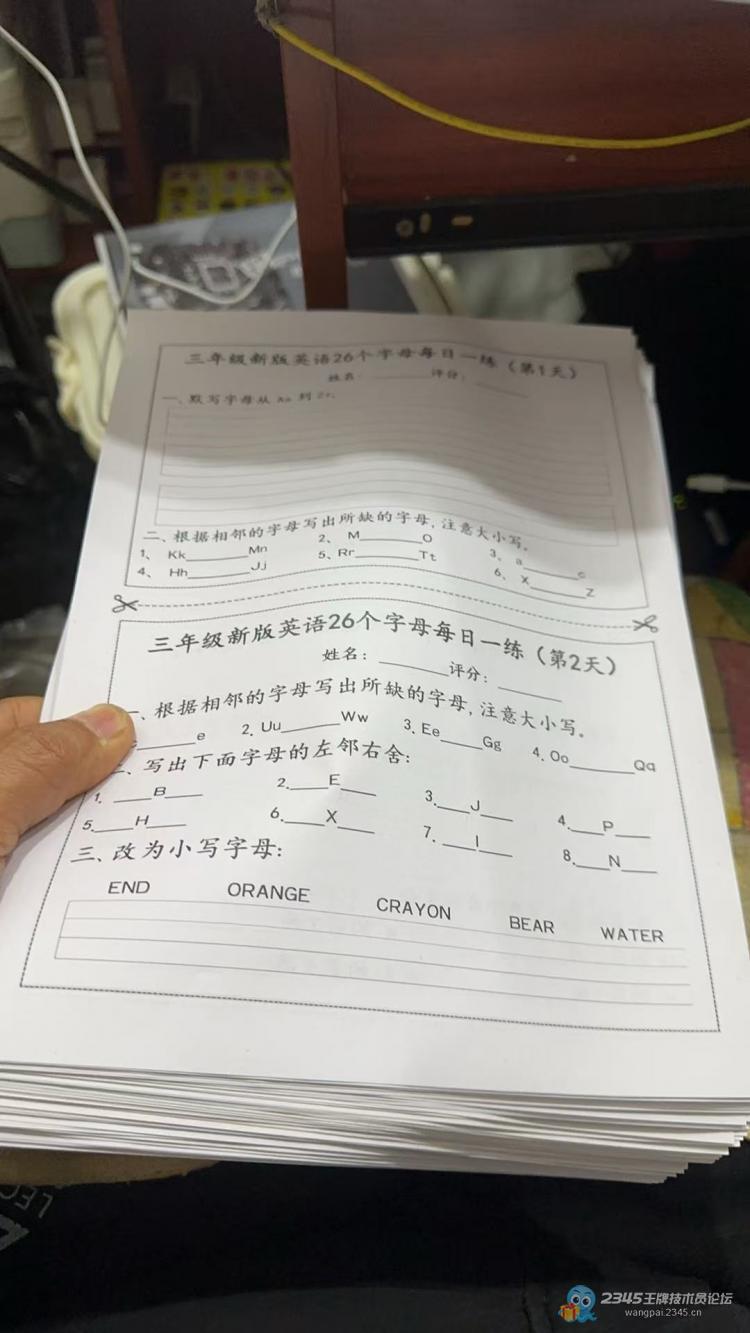 三年级新版英语26个字母每日一练（第1天）
姓名：________评分：________
一、默写字母从 Aa 到 Zz。
二、根据相邻的字母写出所缺的字母,注意大小写。
1、 Kk______Mn 2、 M______O 3、 a______c
4、 Hh______Jj 5、Rr______Tt 6、 X______Z
三年级新版英语26个字母每日一练（第2天）
姓名：________评分：________
一、根据相邻的字母写出所缺的字母,注意大小写。
______e 2. Uu______Ww 3. Ee____Gg 4. Oo______Qq
二、写出下面字母的左邻右舍:
1. ____B____ 2.____E____ 3.____J____ 4.____P____
5.____H____ 6.____X____ 7.____I____ 8.____N____
三、改为小写字母:
END ORANGE CRAYON BEAR WATER
2345王牌技术员论坛
wangpai.2345.cn